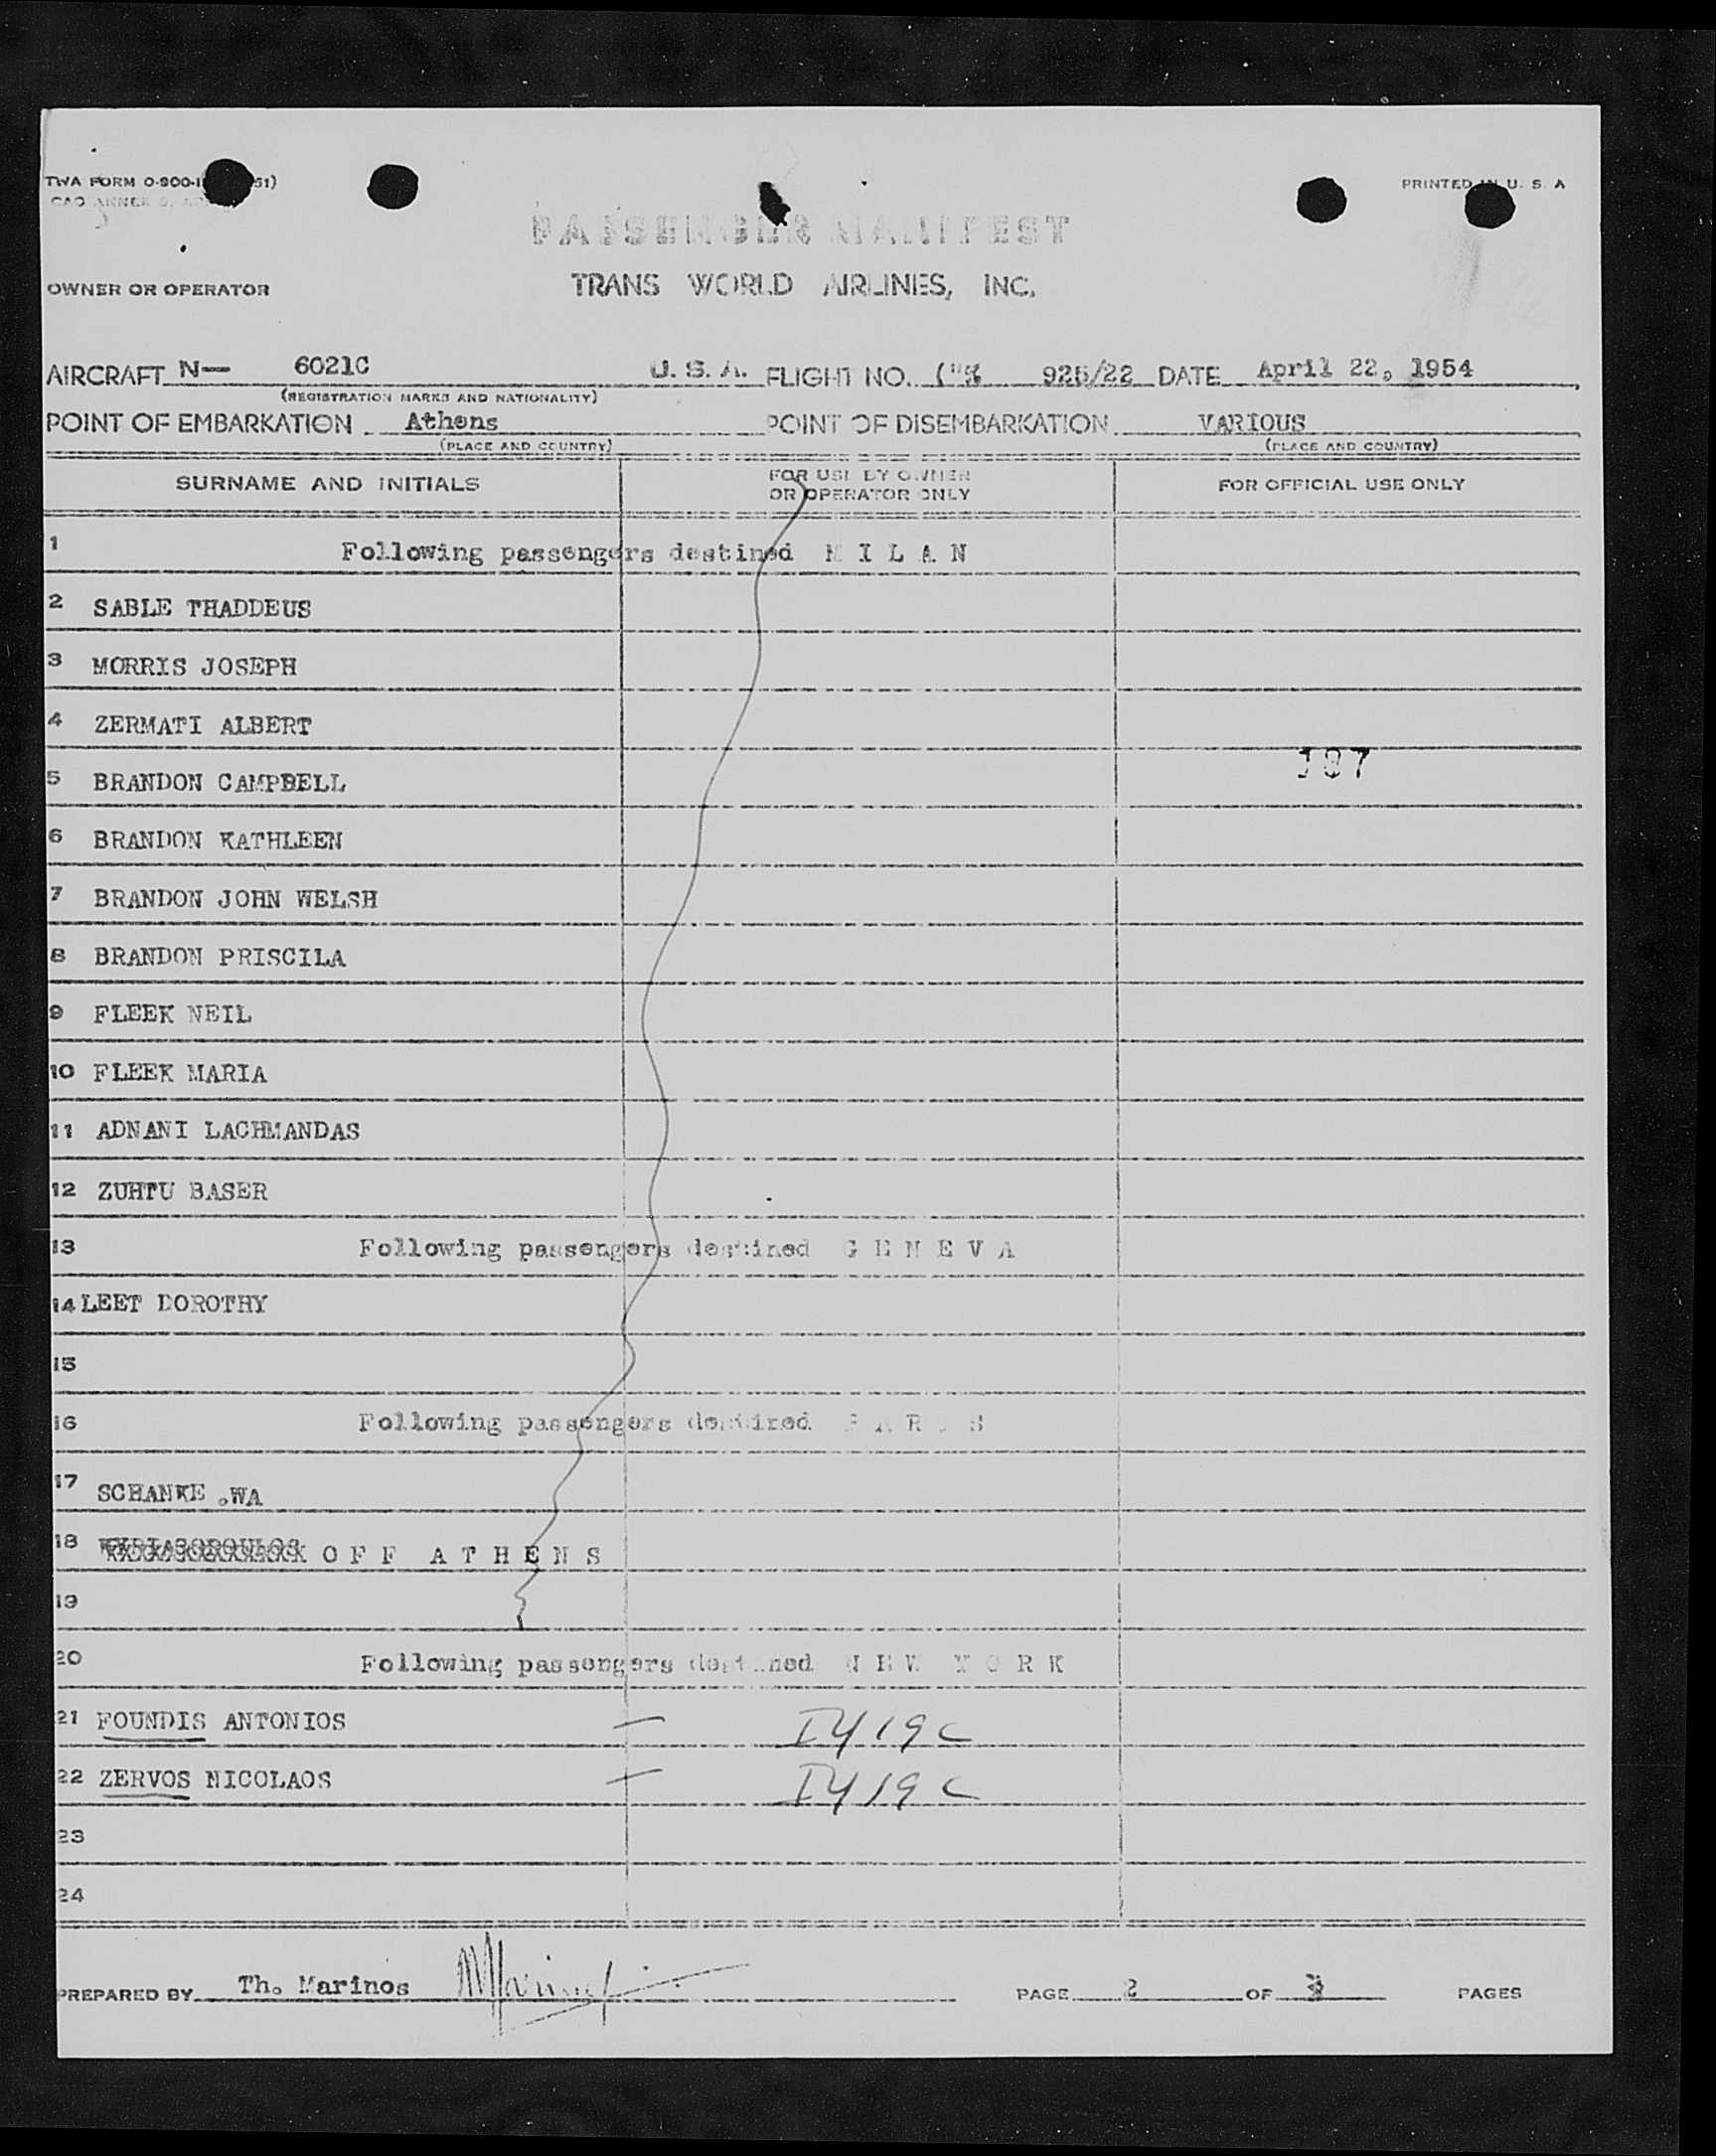 TWA FORM 0-900-1 51)
PRINTED IN U. S. A
PASSENGER MANIFEST
OWNER OR OPERATOR TRANS WORLD AIRLINES, INC.
AIRCRAFT N— 6021C U. S. A. FLIGHT NO. 925/22 DATE April 22, 1954
(REGISTRATION MARKS AND NATIONALITY)
POINT OF EMBARKATION Athens POINT OF DISEMBARKATION VARIOUS
(PLACE AND COUNTRY) (PLACE AND COUNTRY)
SURNAME AND INITIALS FOR USE BY OWNER OR OPERATOR ONLY FOR OFFICIAL USE ONLY
1 Following passengers destined M I L A N
2 SABLE THADDEUS
3 MORRIS JOSEPH
4 ZERMATI ALBERT
5 BRANDON CAMPBELL 197
6 BRANDON KATHLEEN
7 BRANDON JOHN WELSH
8 BRANDON PRISCILA
9 FLEEK NEIL
10 FLEEK MARIA
11 ADNANI LACHMANDAS
12 ZUHTU BASER
13 Following passengers destined G E N E V A
14 LEET DOROTHY
15
16 Following passengers destined P A R I S
17 SCHANKE .WA
18 O F F A T H E N S
19
20 Following passengers destined N E W Y O R K
21 FOUNDIS ANTONIOS — I419C
22 ZERVOS NICOLAOS — I419C
23
24
PREPARED BY Th. Marinos PAGE 2 OF 3 PAGES